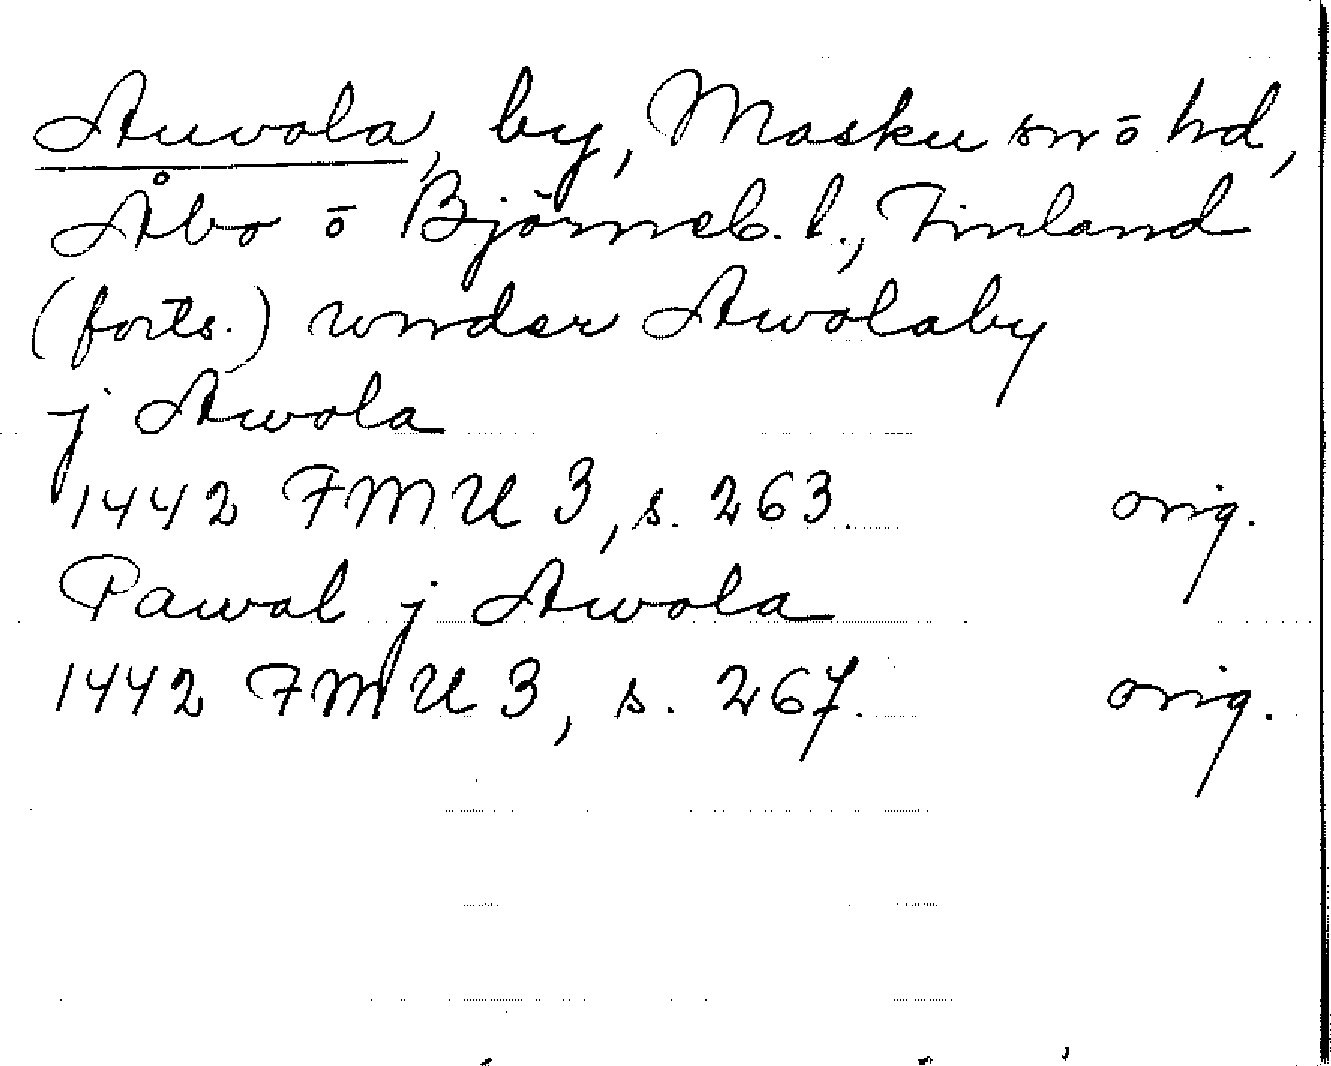 Auvola, by, Masku sn ō hd,
Åbo ō Björneb. l., Finland
(forts.) wnder Awolaby
j Awola
1442 FMU 3, s. 263. orig.
Pawal j Awola
1442 FMU 3, s. 267. orig.